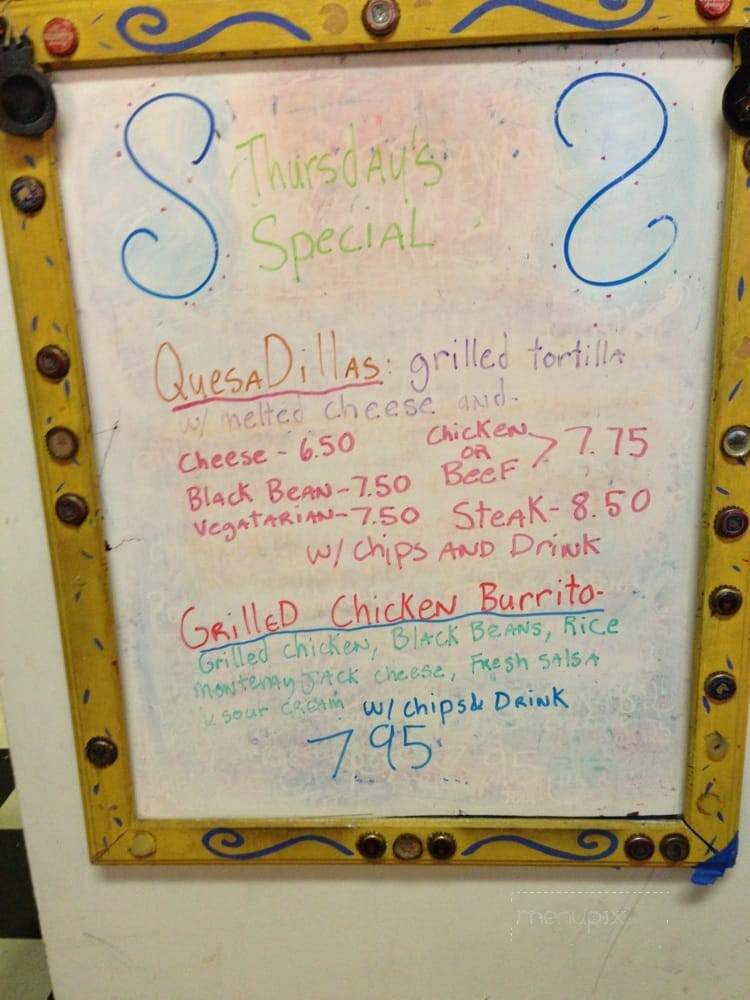 Thursday's
Special
QuesaDillas: grilled tortilla
w/ melted cheese and
Cheese - 6.50
Chicken
OR
Beef > 7.75
Black Bean - 7.50
Vegatarian - 7.50
Steak - 8.50
w/ chips and Drink
Grilled Chicken Burrito-
Grilled chicken, Black Beans, Rice
monteray Jack cheese, Fresh salsa
& sour cream w/ chips & Drink
7 95
menupix